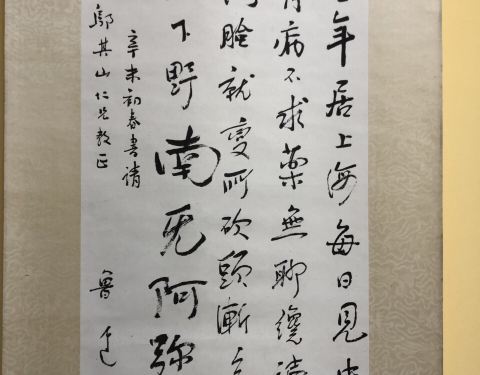 年居上海每日見
病不求藥無聊纔
臉就變所砍頭漸
下野南无阿弥
辛未初春書請
鄔其山仁兄教正
魯迅